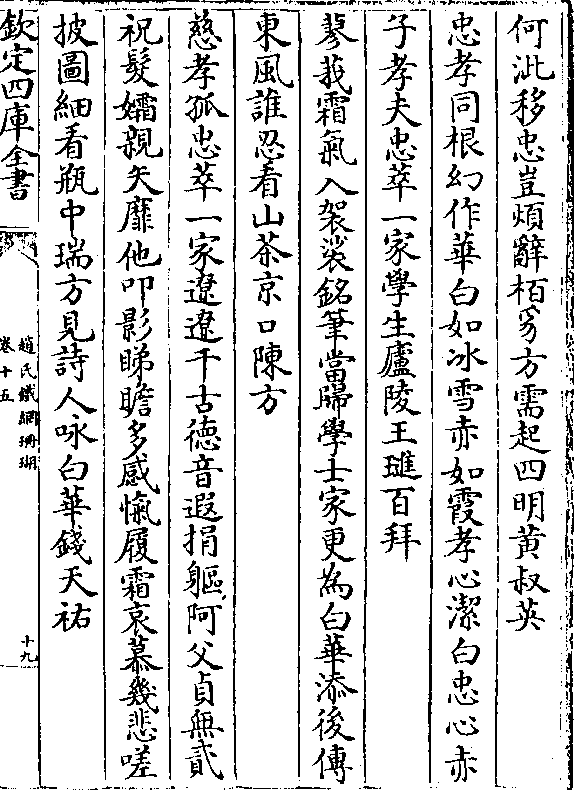 何泚移忠豈煩辭栢舄方需起四明黄叔英
忠孝同根幻作華白如冰雪赤如霞孝心潔白忠心赤
子孝夫忠萃一家學生廬陵王璡百拜
蓼莪霜氣入袈裟銘筆當歸學士家更為白華添後傳
東風誰忍看山茶京口陳方
慈孝孤忠萃一家遼遼千古德音遐捐軀阿父貞無貳
祝髮孀親矢靡他叩影睇瞻多感愾履霜哀慕幾悲嗟
披圖細看瓶中瑞方見詩人咏白華錢天祐
欽定四庫全書
趙氏鐵網珊瑚
卷十五
十九